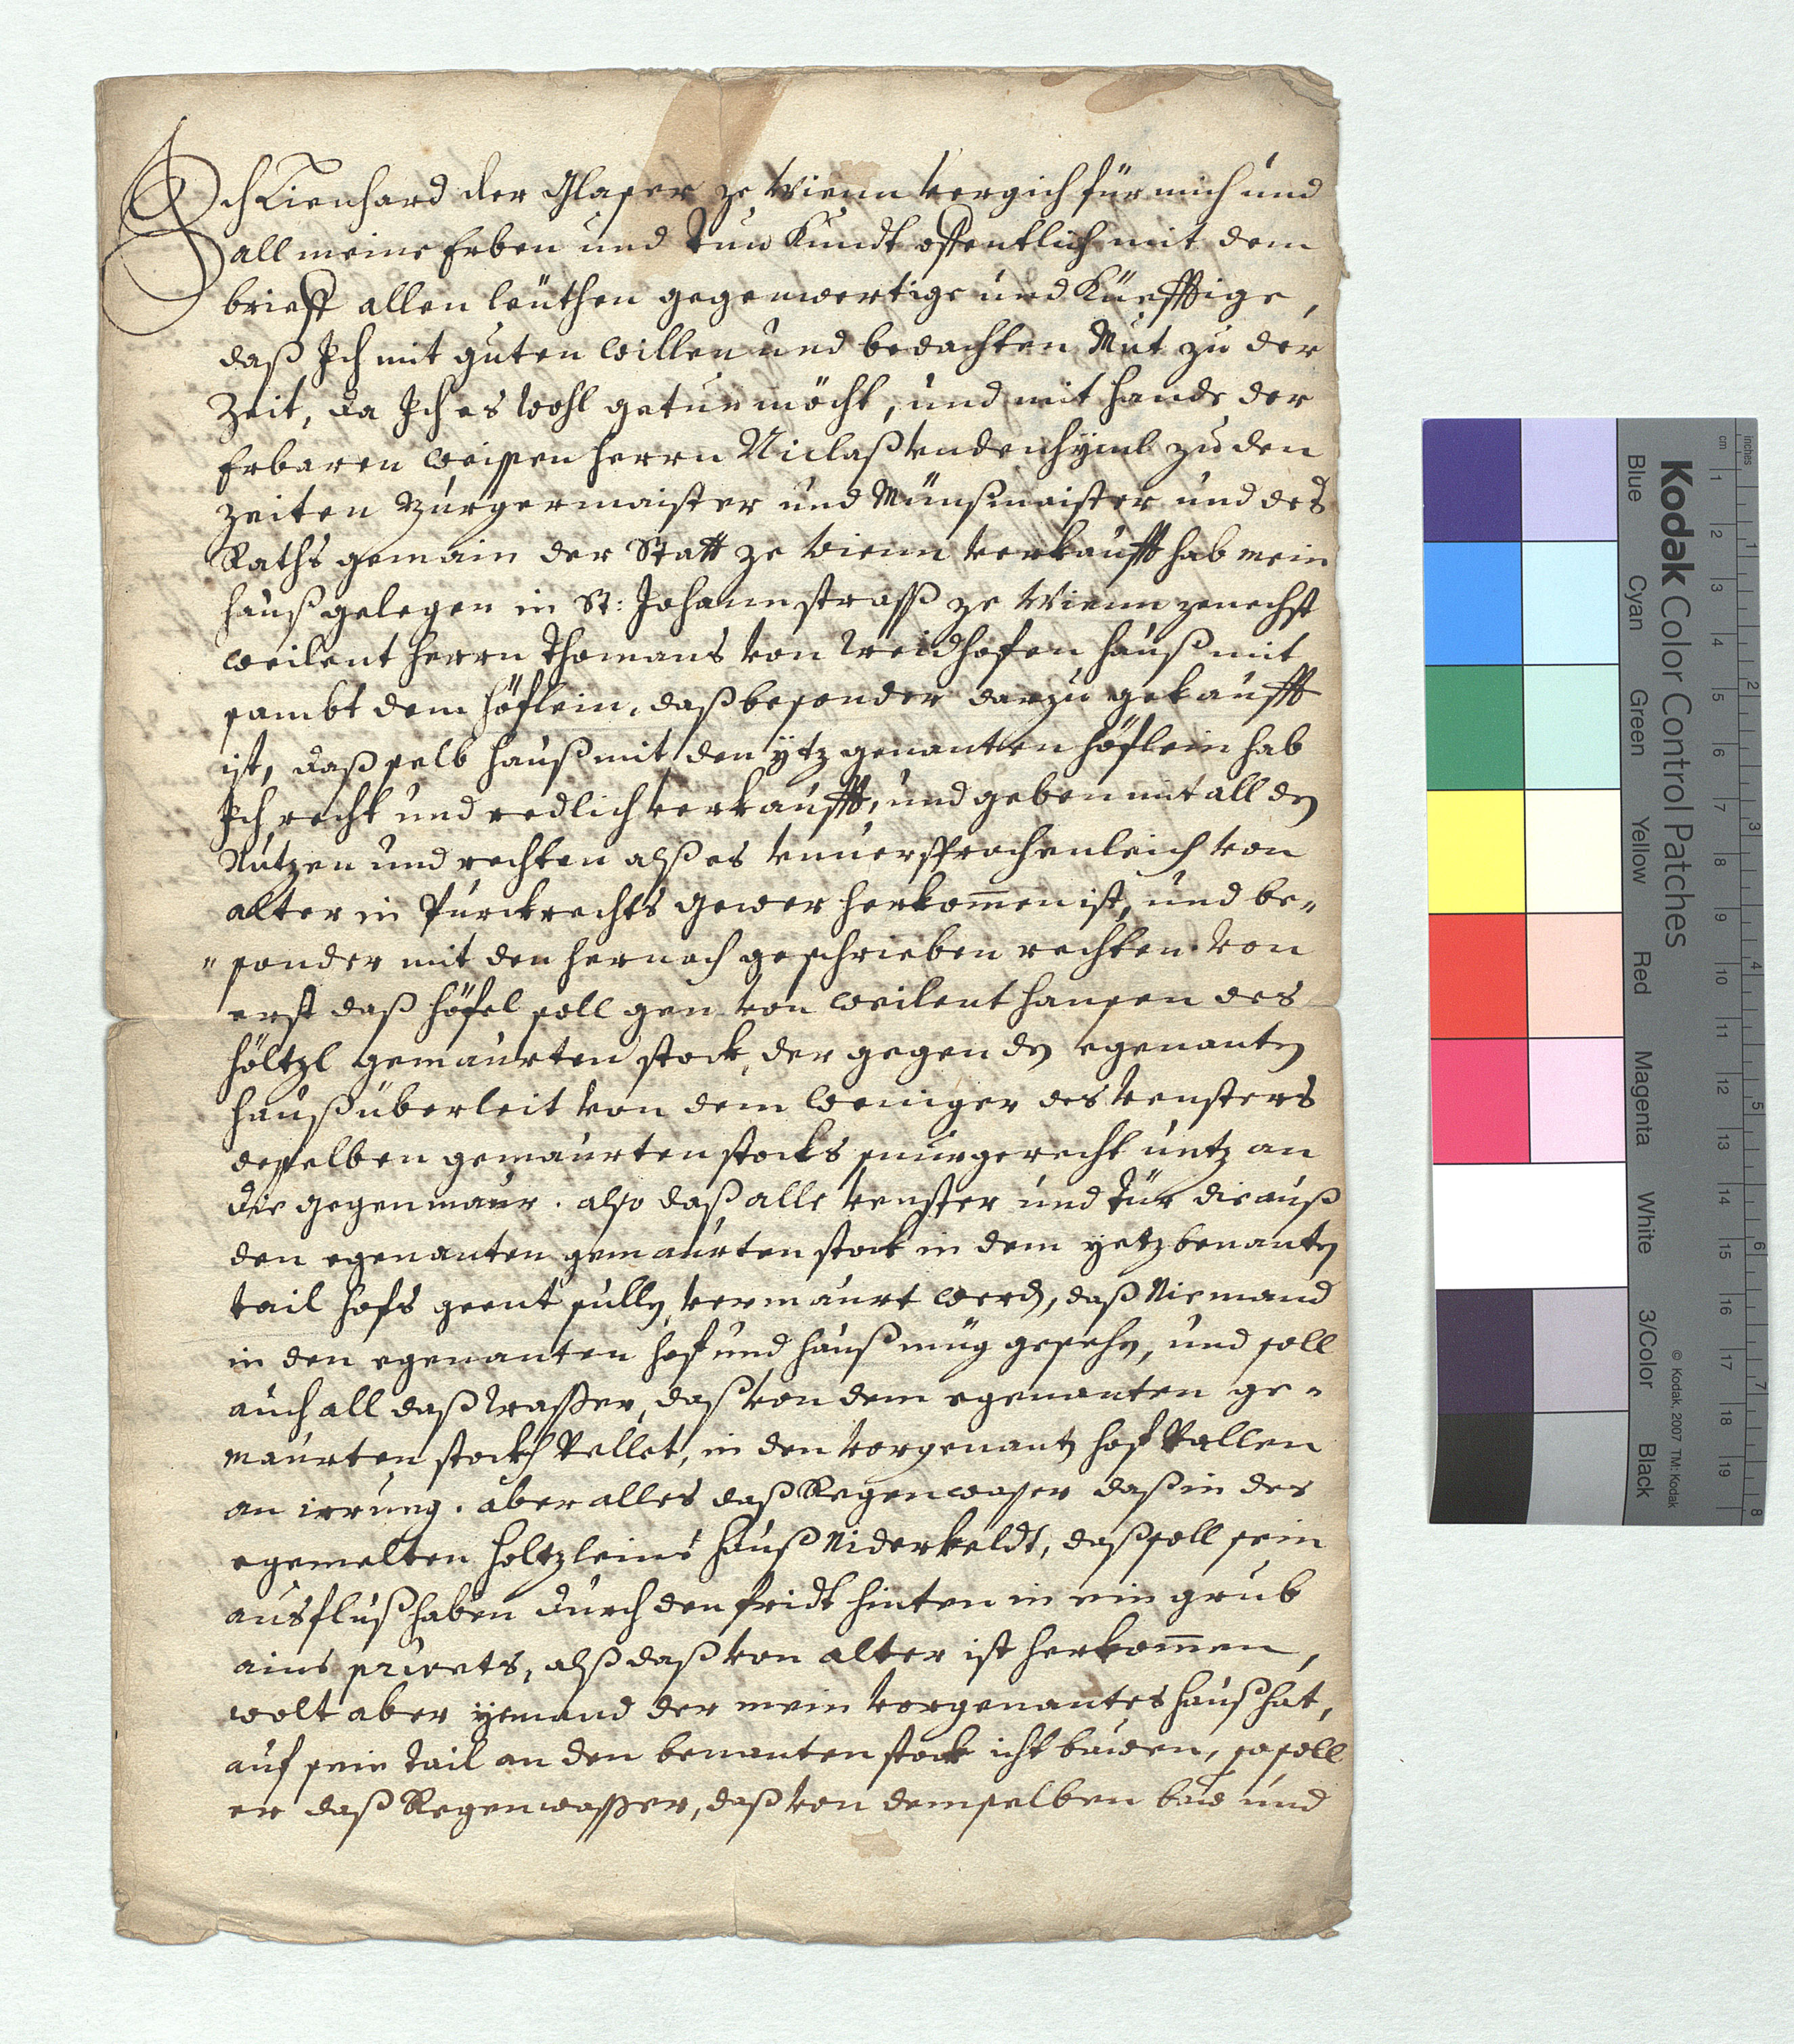 Ich Lienhard der Glaser ze Wienn vergich für mich und
all meine Erben und tun kundt offentlich mit dem
brieff allen leüthen gegenwertige und Künfftige,
daß Ich mit guten willen und bedachten Mut zu der
Zeit, da Ich es wohl getun möcht, und mit hande der
Erbaren weisen herrn Niclaß vndenhyml zu den
zeiten Burgermaister und Münßmaister und des
Raths gemain der Statt ze wienn verkaufft hab mein
hauß gelegen in St: Johannstrasß ze Wienn zenechst
weilent herrn Thomans von Weidhofen hauß mit
sambt dem höflein, daß besonder darzu gekaufft
ist, daß selb hauß mit den ÿtz genanten höflein hab
Ich recht und redlich verkaufft, und geben mit all den
Nutzen und rechten alß es vnuersprochenleich von
alter in Purckrechts gewer herkom̄en ist, und be„
„sonder mit den hernach geschrieben rechten. von
erst daß höfel soll gen von weilent hansen des
höltzl gemaurten stock, der gegen den egenanten
hauß überleit von dem weniger des vensters
desselben gemaurten stocks snurgerecht untz an
die gegenmaur. also daß alle venster und tür die auß
den egenanten gemaurten stock in dem yetzbenanten
tail hofs geent sullen vermaurt werden, daß Niemand
in den egenanten hof und hauß müg gesehen, und soll
auch all daß Wasser, daß von dem egenanten ge„
maurten stockh vellet, in den vorgenanten hof vallen
an irrung. aber alles daß Regenwasser daß in des
egemelten holtzleins hauß Niderveldt, daß soll sein
ausfluß haben durch den fridt hinten in ein grub
ains privets, alß daß von alter ist herkom̄en,
wolt aber yemand der mein vorgenantes hauß hat,
auf sein tail an den benanten stock icht bawen, so soll
er daß Regenwasser, daß von demselben baw und
Kodak Color Control Patches
Blue Cyan Green Yellow Red Magenta White 3/Color Black
© Kodak, 2007 TM: Kodak
inches 1 2 3 4 5 6 7 8
cm 1 2 3 4 5 6 7 8 9 10 11 12 13 14 15 16 17 18 19